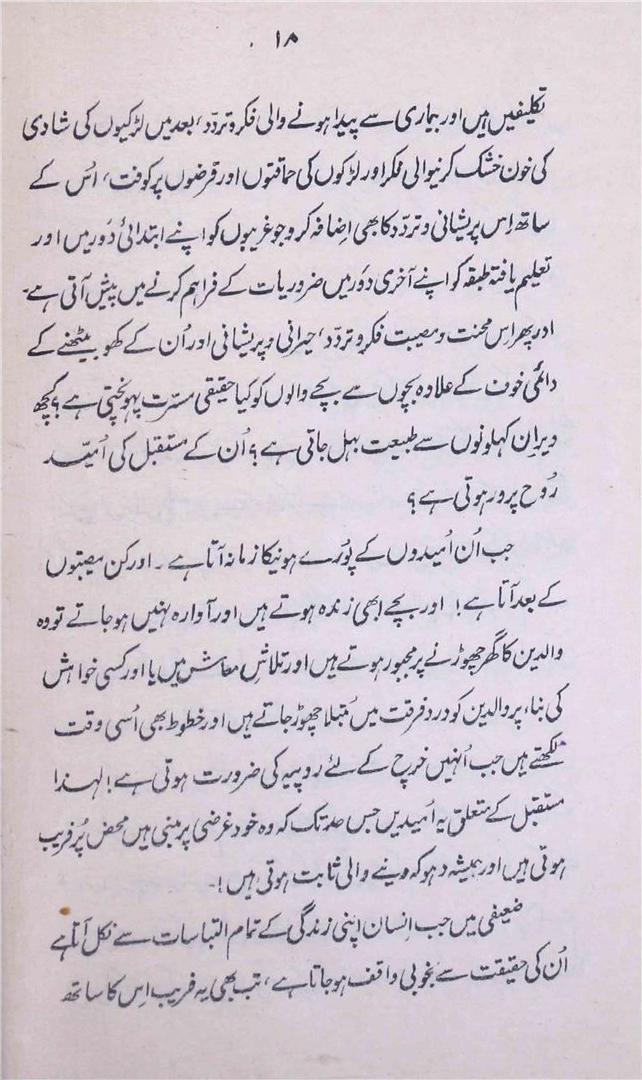 ۱۸
تکلیفیں ہیں اور بیماری سے پیدا ہونے والی فکر و تردّد، بعد میں لڑکیوں کی شادی
کی خون خشک کرنیوالی فکر اور لڑکوں کی حماقتوں اور قرضوں پر کوفت، اُس کے
ساتھ اِس پریشانی و تردّد کا بھی اِضافہ کرو جو غریبوں کو اپنے ابتدائی دَور میں اور
تعلیم یافتہ طبقہ کو اپنے آخری دَور میں ضروریات کے فراہم کرنے میں پیش آتی ہے۔
ادر پھر اِس محنت و مصیبت فکر و تردّد، حیرانی و پریشانی اور اُن کے کھو بیٹھنے کے
دائمی خوف کے علاوہ بچوں سے بچے والوں کو کیا حقیقی مسرّت پہونچتی ہے؟ کچھ
دیر ان کہلونوں سے طبیعت بہل جاتی ہے؟ اُن کے مستقبل کی اُمیّد
رُوح پرور ہوتی ہے؟
جب اُن اُمیدوں کے پُورے ہونیکا زمانہ آتا ہے ۔ اور کن مصیبتوں
کے بعد آتا ہے! اور بچے ابھی زندہ ہوتے ہیں اور آوارہ نہیں ہو جاتے تو وہ
والدین کا گھر چھوڑنے پر مجبور ہوتے ہیں اور تلاشِ معاش میں یا اور کسی خواہش
کی بناء پر والدین کو درد فرقت میں مُبتلا چھوڑ جاتے ہیں اور خطوط بھی اُسی وقت
لکھتے ہیں جب اُنہیں خرچ کے لئے روپیہ کی ضرورت ہوتی ہے! لہٰذا
مستقبل کے متعلق یہ اُمیدیں جس حد تک کہ وہ خود غرضی پر مبنی ہیں محض پُر فریب
ہوتی ہیں اور ہمیشہ دہوکہ دینے والی ثابت ہوتی ہیں!۔
ضعیفی میں جب اِنسان اپنی زندگی کے تمام التباسات سے نکل آتا ہے
اُن کی حقیقت سے بخوبی واقف ہو جاتا ہے، تب بھی یہ فریب اِس کا ساتھ